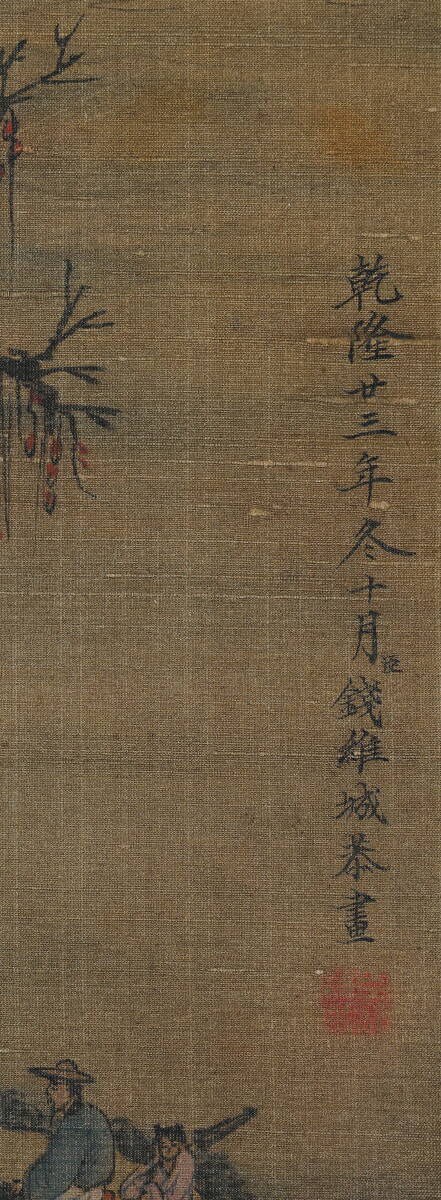 乾隆廿三年冬十月臣錢維城恭畫